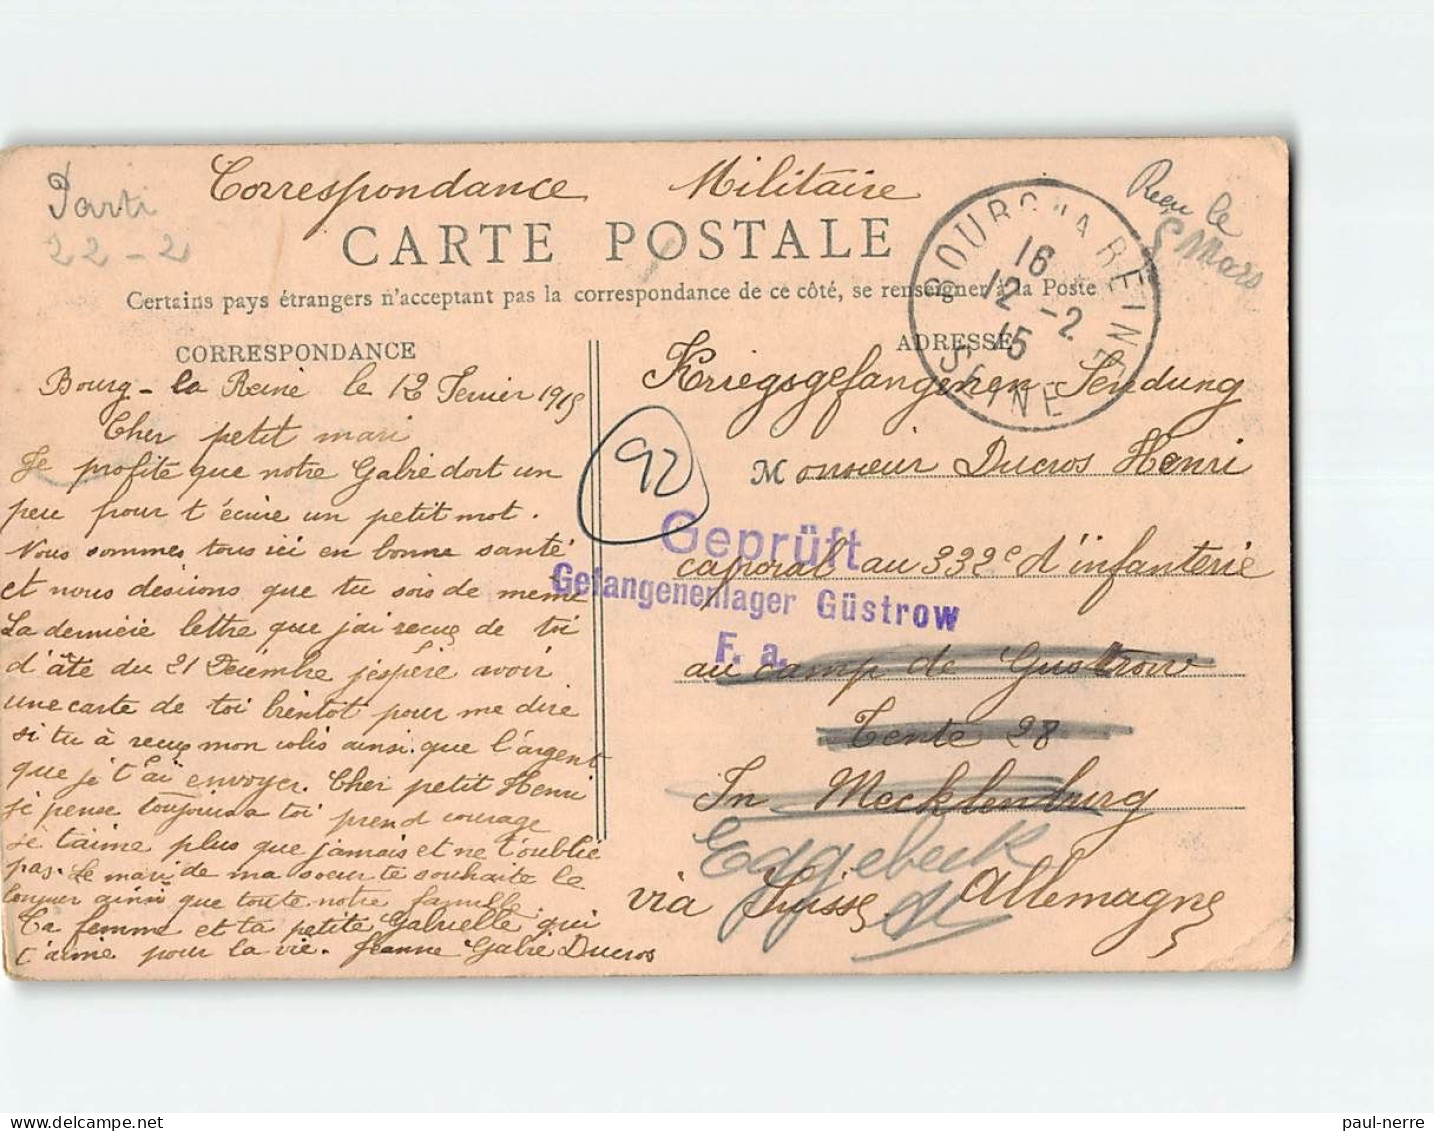 Correspondance Militaire
Parti
22-2
Reçu le
Mars
CARTE POSTALE
Certains pays étrangers n'acceptant pas la correspondance de ce côté, se renseigner à la Poste
BOURG LA REINE
16
12 -2
15
SEINE
CORRESPONDANCE
Bourg-la Reine le 12 Fevrier 1915
Cher petit mari
Je profite que notre Gabie dort un
peu pour t'écrire un petit mot.
Nous sommes tous ici en bonne santé
et nous desirons que tu sois de meme
La derniére lettre que j'ai recue de toi
d'âte du 21 Decembre j'espère avoir
une carte de toi bientôt pour me dire
si tu à recus mon colis ainsi que l'argent
que je t'ai envoyer. Cher petit Henri
je pense toujours a toi prend courage
je t'aime plus que jamais et ne t'oublie
pas. Le mari de ma soeur te souhaite le
bonjour ainsi que toute notre famille.
Ta femme et ta petite Gabrielle qui
t'aime pour la vie. Jeanne Gabie Ducros
ADRESSE
Kriegsgefangenen Sendung
92
Monsieur Ducros Henri
Geprüft
caporal au 332e d'infanterie
Gefangenenlager Güstrow
F. a.
au camp de Gustrow
Tente 28
In Mecklenburg
Eggebeck
via Suisse Allemagne
paul-nerre